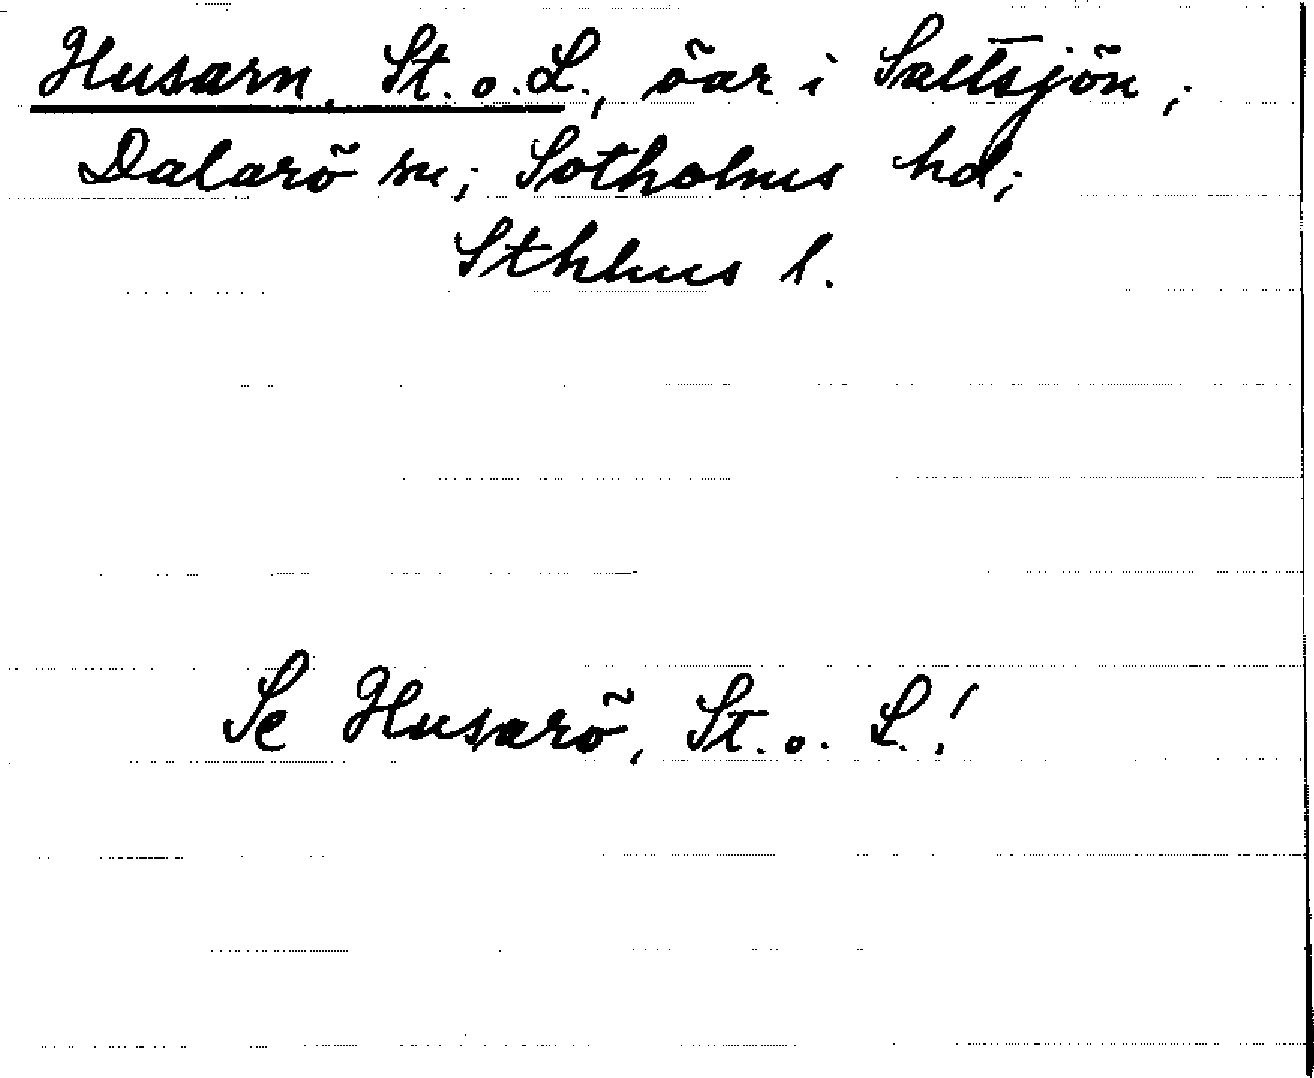 Husarn, St. o. L., öar i Saltsjön;
Dalarö sn; Sotholms hd;
Sthlms l.
Se Husarö, St. o. L.!